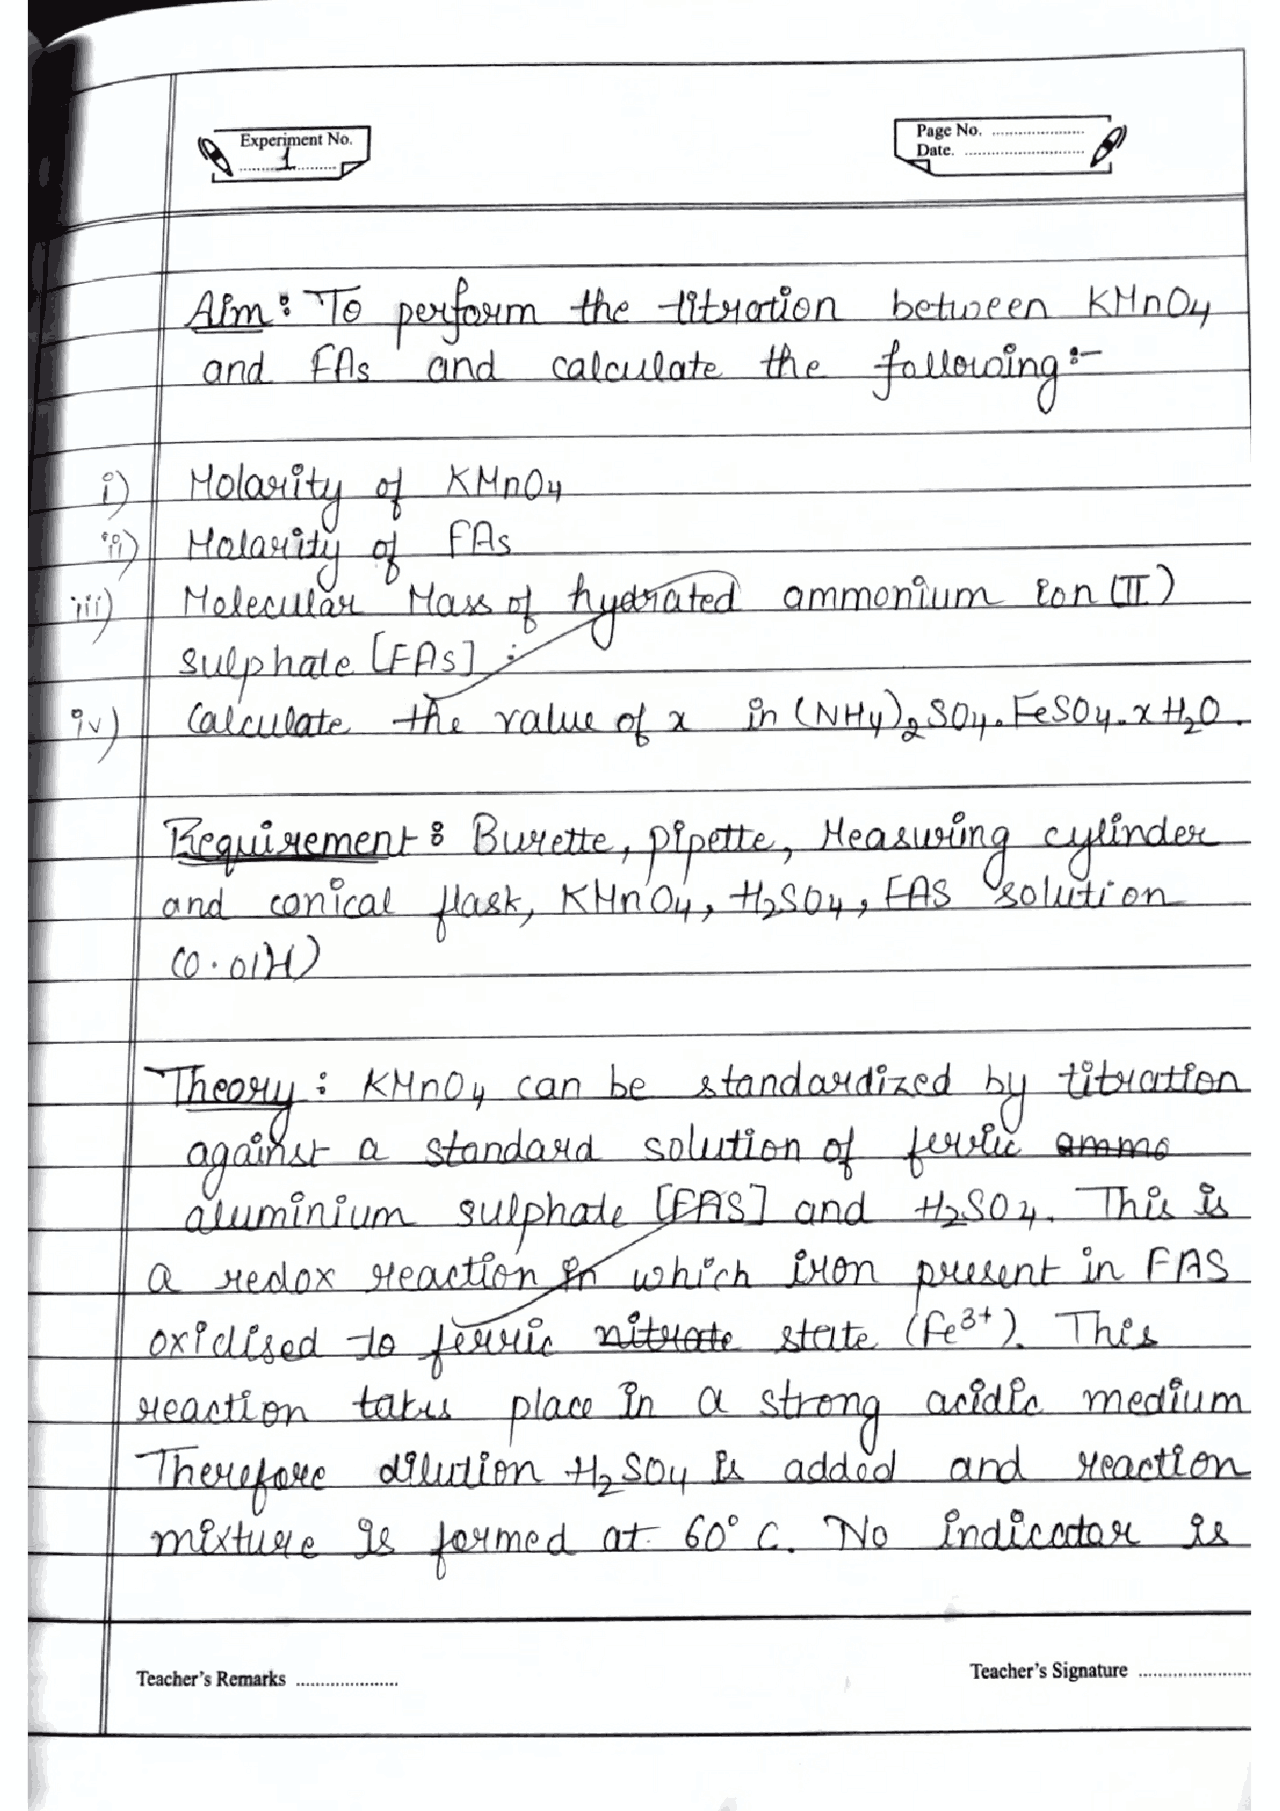 Experiment No.
1
Page No. ........................
Date. ................................
Aim: To perform the titration between KMnO4
and FAs and calculate the following :-
i) Molarity of KMnO4
ii) Molarity of FAs
iii) Molecular Mass of hydrated ammonium ion (II)
sulphate [FAs] :
iv) Calculate the value of x in (NH4)2SO4.FeSO4.xH2O.
Requirement : Burette, pipette, Measuring cylinder
and conical flask, KMnO4, H2SO4, FAS solution
(0.01M)
Theory : KMnO4 can be standardized by titration
against a standard solution of ferric ammo
aluminium sulphate [FAS] and H2SO4. This is
a redox reaction in which iron present in FAS
oxidised to ferric nitrate state (Fe3+). This
reaction takes place in a strong acidic medium
Therefore dilution H2SO4 is added and reaction
mixture is formed at 60° C. No indicator is
Teacher's Remarks .....................
Teacher's Signature .......................